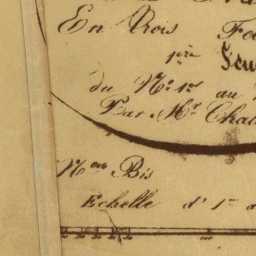 En Trois Fe
1re Feu
du No. 1er au
Par Mr. Chal
Non Bis
Echelle d' 1 a